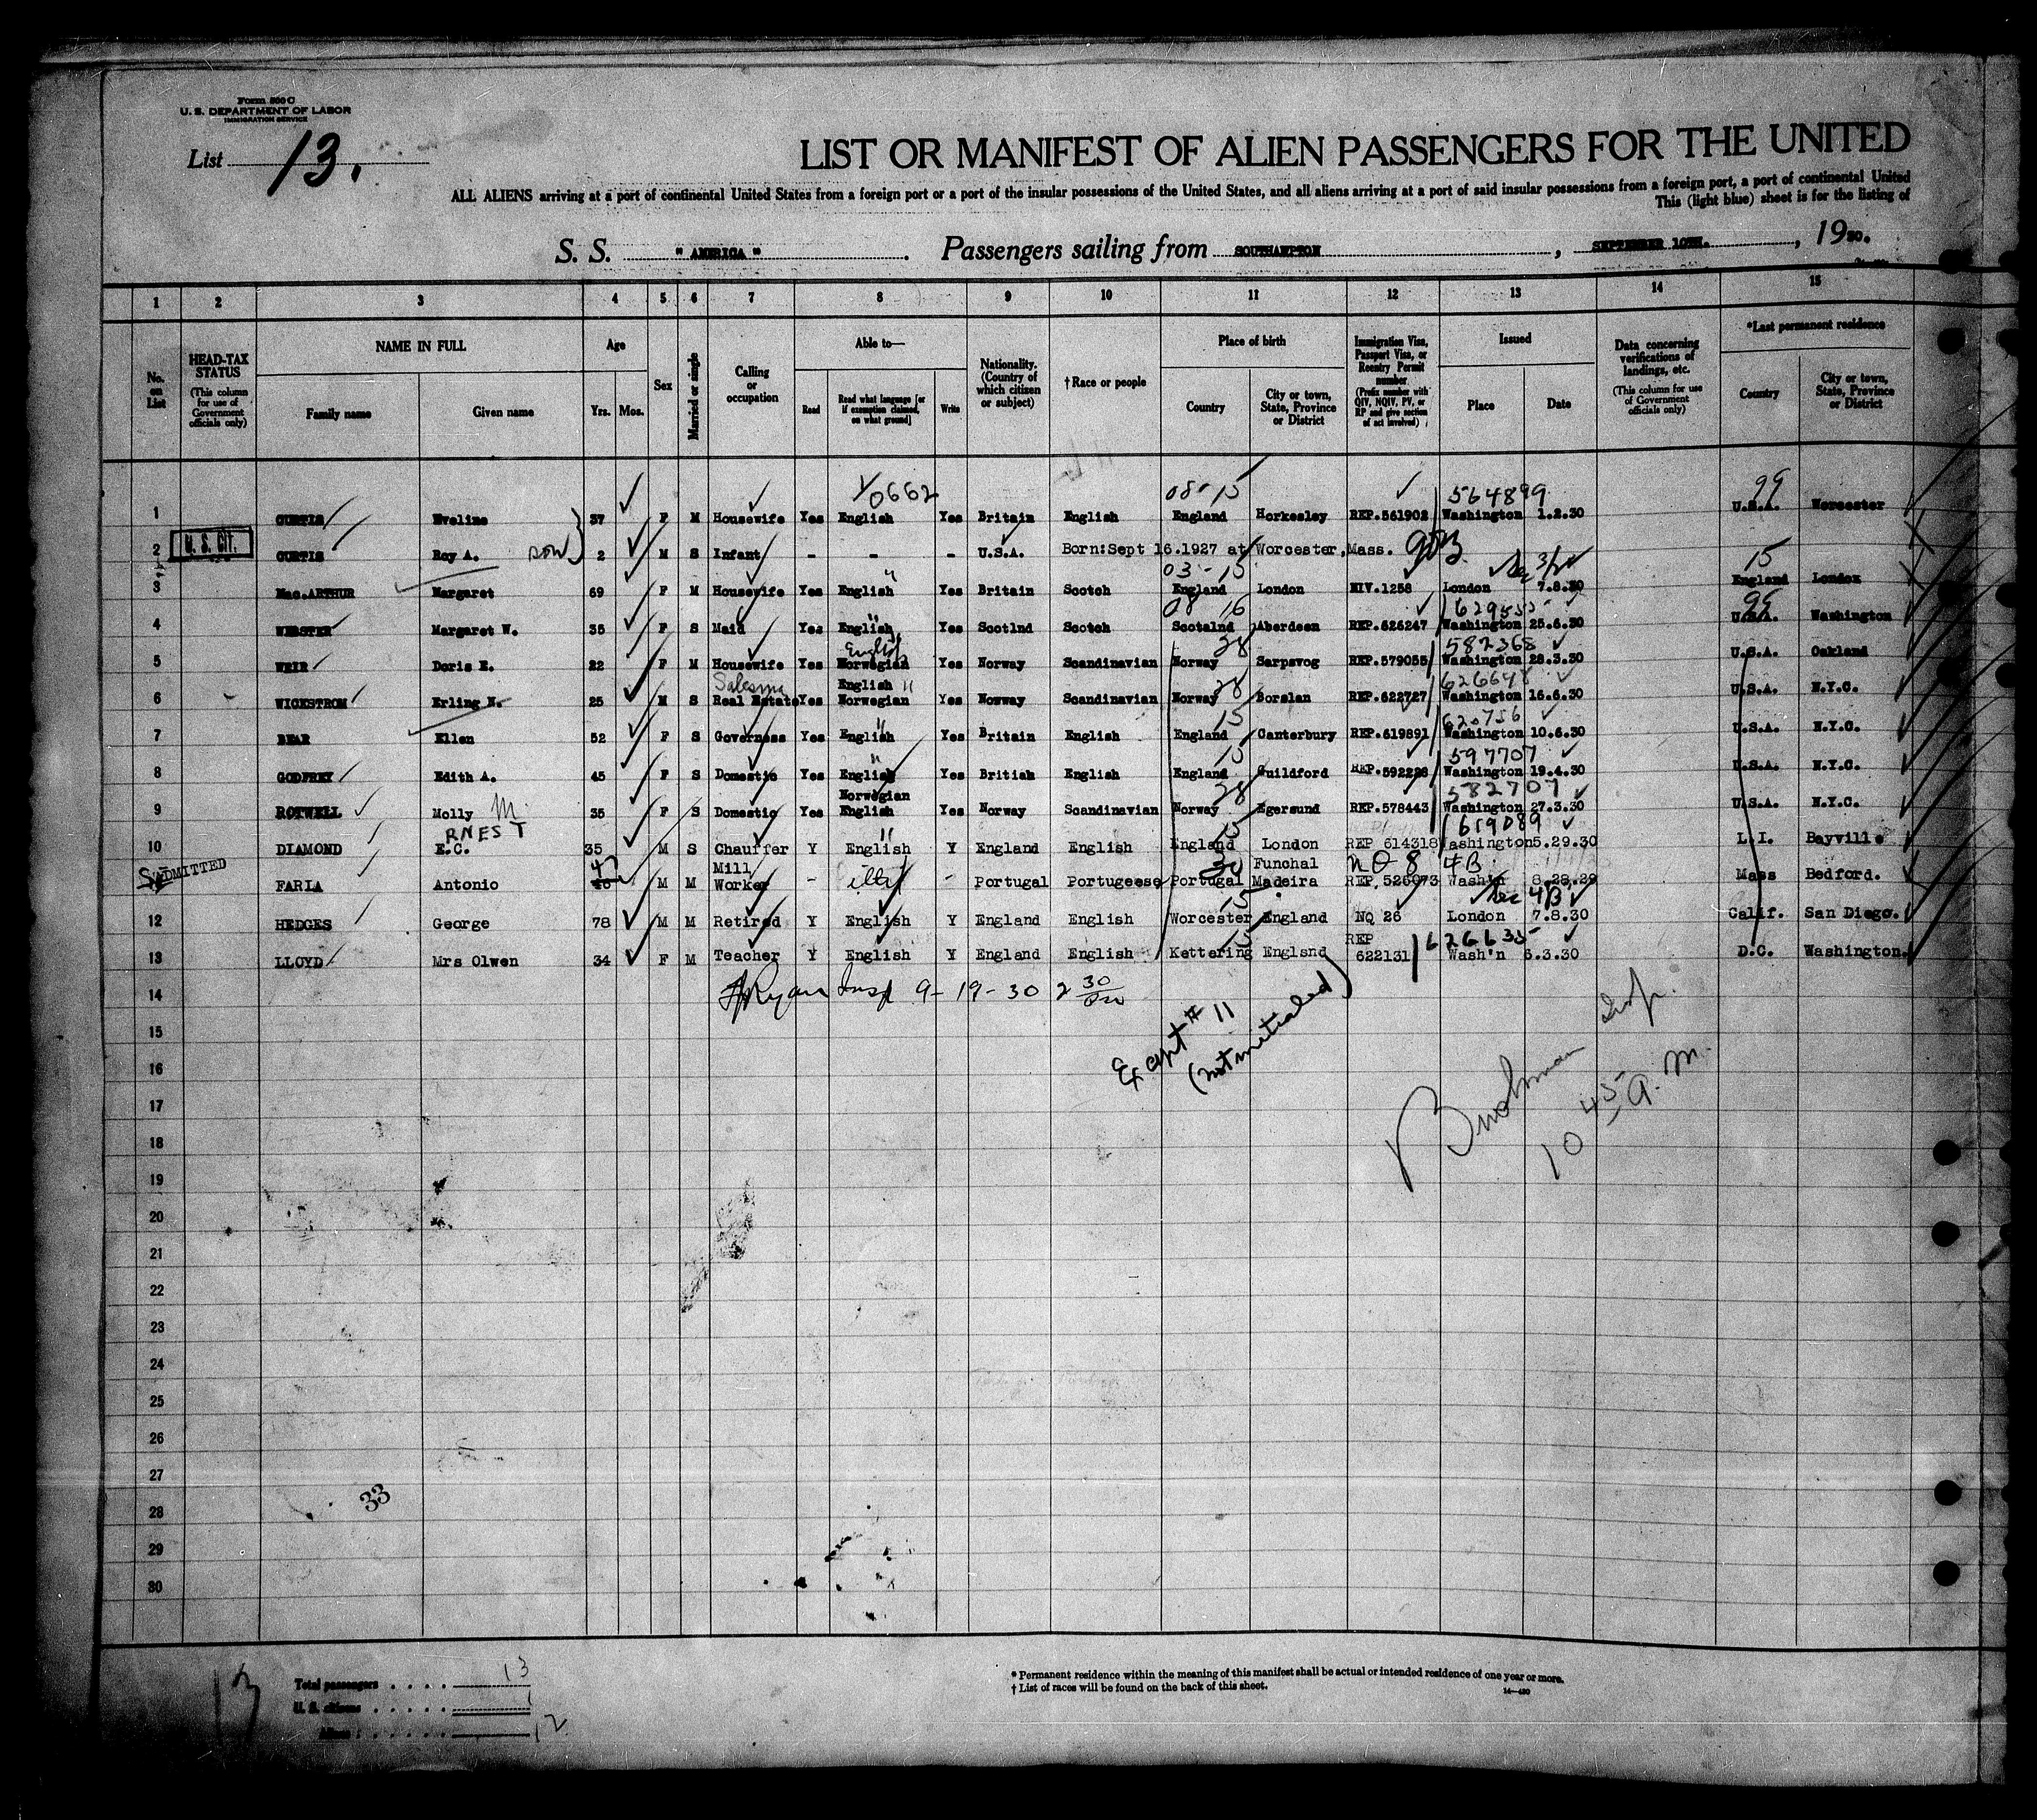 Form 500 C
U. S. DEPARTMENT OF LABOR
IMMIGRATION SERVICE
List 13.
LIST OR MANIFEST OF ALIEN PASSENGERS FOR THE UNITED
ALL ALIENS arriving at a port of continental United States from a foreign port or a port of the insular possessions of the United States, and all aliens arriving at a port of said insular possessions from a foreign port, a port of continental United
This (light blue) sheet is for the listing of
S. S. " AMERICA ". Passengers sailing from SOUTHAMPTON, SEPTEMBER 10TH., 1930.
1 2 3 4 5 6 7 8 9 10 11 12 13 14 15
No. on List
HEAD-TAX STATUS (This column for use of Government officials only)
NAME IN FULL
Family name Given name
Age
Yrs. Mos.
Sex
Married or single
Calling or occupation
Able to—
Read
Read what language [or if exemption claimed, on what ground]
Write
Nationality. (Country of which citizen or subject)
† Race or people
Place of birth
Country
City or town, State, Province or District
Immigration Visa, Passport Visa, or Reentry Permit number (Prefix number with QIV, NQIV, PV, or RP and give section of act involved)
Issued
Place Date
Data concerning verifications of landings, etc. (This column for use of Government officials only)
*Last permanent residence
Country
City or town, State, Province or District
0662 08-15 564899 99
1 CURTIS Eveline 37 F M Housewife Yes English Yes Britain English England Horkesley REP.561902 Washington 1.2.30 U.S.A. Worcester
U. S. CIT.
2 CURTIS Roy A. son 2 M S Infant - - - U.S.A. Born:Sept 16.1927 at Worcester, Mass.
03-15 Sec 3/2 15
3 Mac.ARTHUR Margaret 69 F M Housewife Yes English Yes Britain Scotch England London NIV.1258 London 7.8.30 England London
08 16 629555 99
4 WEBSTER Margaret W. 35 F S Maid Yes English Yes Scotlnd Scotch Scotalnd Aberdeen REP.626247 Washington 25.6.30 U.S.A. Washington
English 28 582368
5 WEIR Doris E. 22 F M Housewife Yes Norwegian Yes Norway Scandinavian Norway Sarpsvog REP.579055 Washington 28.3.30 U.S.A. Oakland
Salesman English 28 626648
6 WICKSTROM Erling N. 25 M S Real Estate Yes Norwegian Yes Nowway Scandinavian Norway Borslan REP.622727 Washington 16.6.30 U.S.A. N.Y.C.
15 620756
7 BEAR Ellen 52 F S Governess Yes English Yes Britain English England Canterbury REP.619891 Washington 10.6.30 U.S.A. N.Y.C.
15 597707
8 GODFREY Edith A. 45 F S Domestic Yes English Yes British English England Guildford REP.592228 Washington 19.4.30 U.S.A. N.Y.C.
Norwegian 28 582707
9 ROTWELL Molly M 35 F S Domestic Yes English Yes Norway Scandinavian Norway Egersund REP.578443 Washington 27.3.30 U.S.A. N.Y.C.
RNEST 15 619089
10 DIAMOND E.C. 35 M S Chauffer Y English Y England English England London REP 614318 Washington 5.29.30 L.I. Bayville
ADMITTED
47 Mill 30 Funchal NQ 8 4B
FARIA Antonio 46 M M Worker - - Portugal Portugeese Portugal Madeira REP.526073 Wash'n 8.28.29 Mass Bedford.
15 Sec 4B
12 HEDGES George 78 M M Retired Y English Y England English Worcester England NQ 26 London 7.8.30 Calif. San Diego.
15 REP 626635
13 LLOYD Mrs Olwen 34 F M Teacher Y English Y England English Kettering Englsnd 622131 Wash'n 6.3.30 D.C. Washington.
14 Ryan Insp 9-19-30 2 30 pm
Except # 11
(not initialed)
15
16
17
Insp.
10 45 a. m.
18
19
20
21
22
23
24
25
26
27
28
33
29
30
13
Total passengers 13
U. S. citizens 1
Aliens 12
* Permanent residence within the meaning of this manifest shall be actual or intended residence of one year or more.
† List of races will be found on the back of this sheet.
14—480